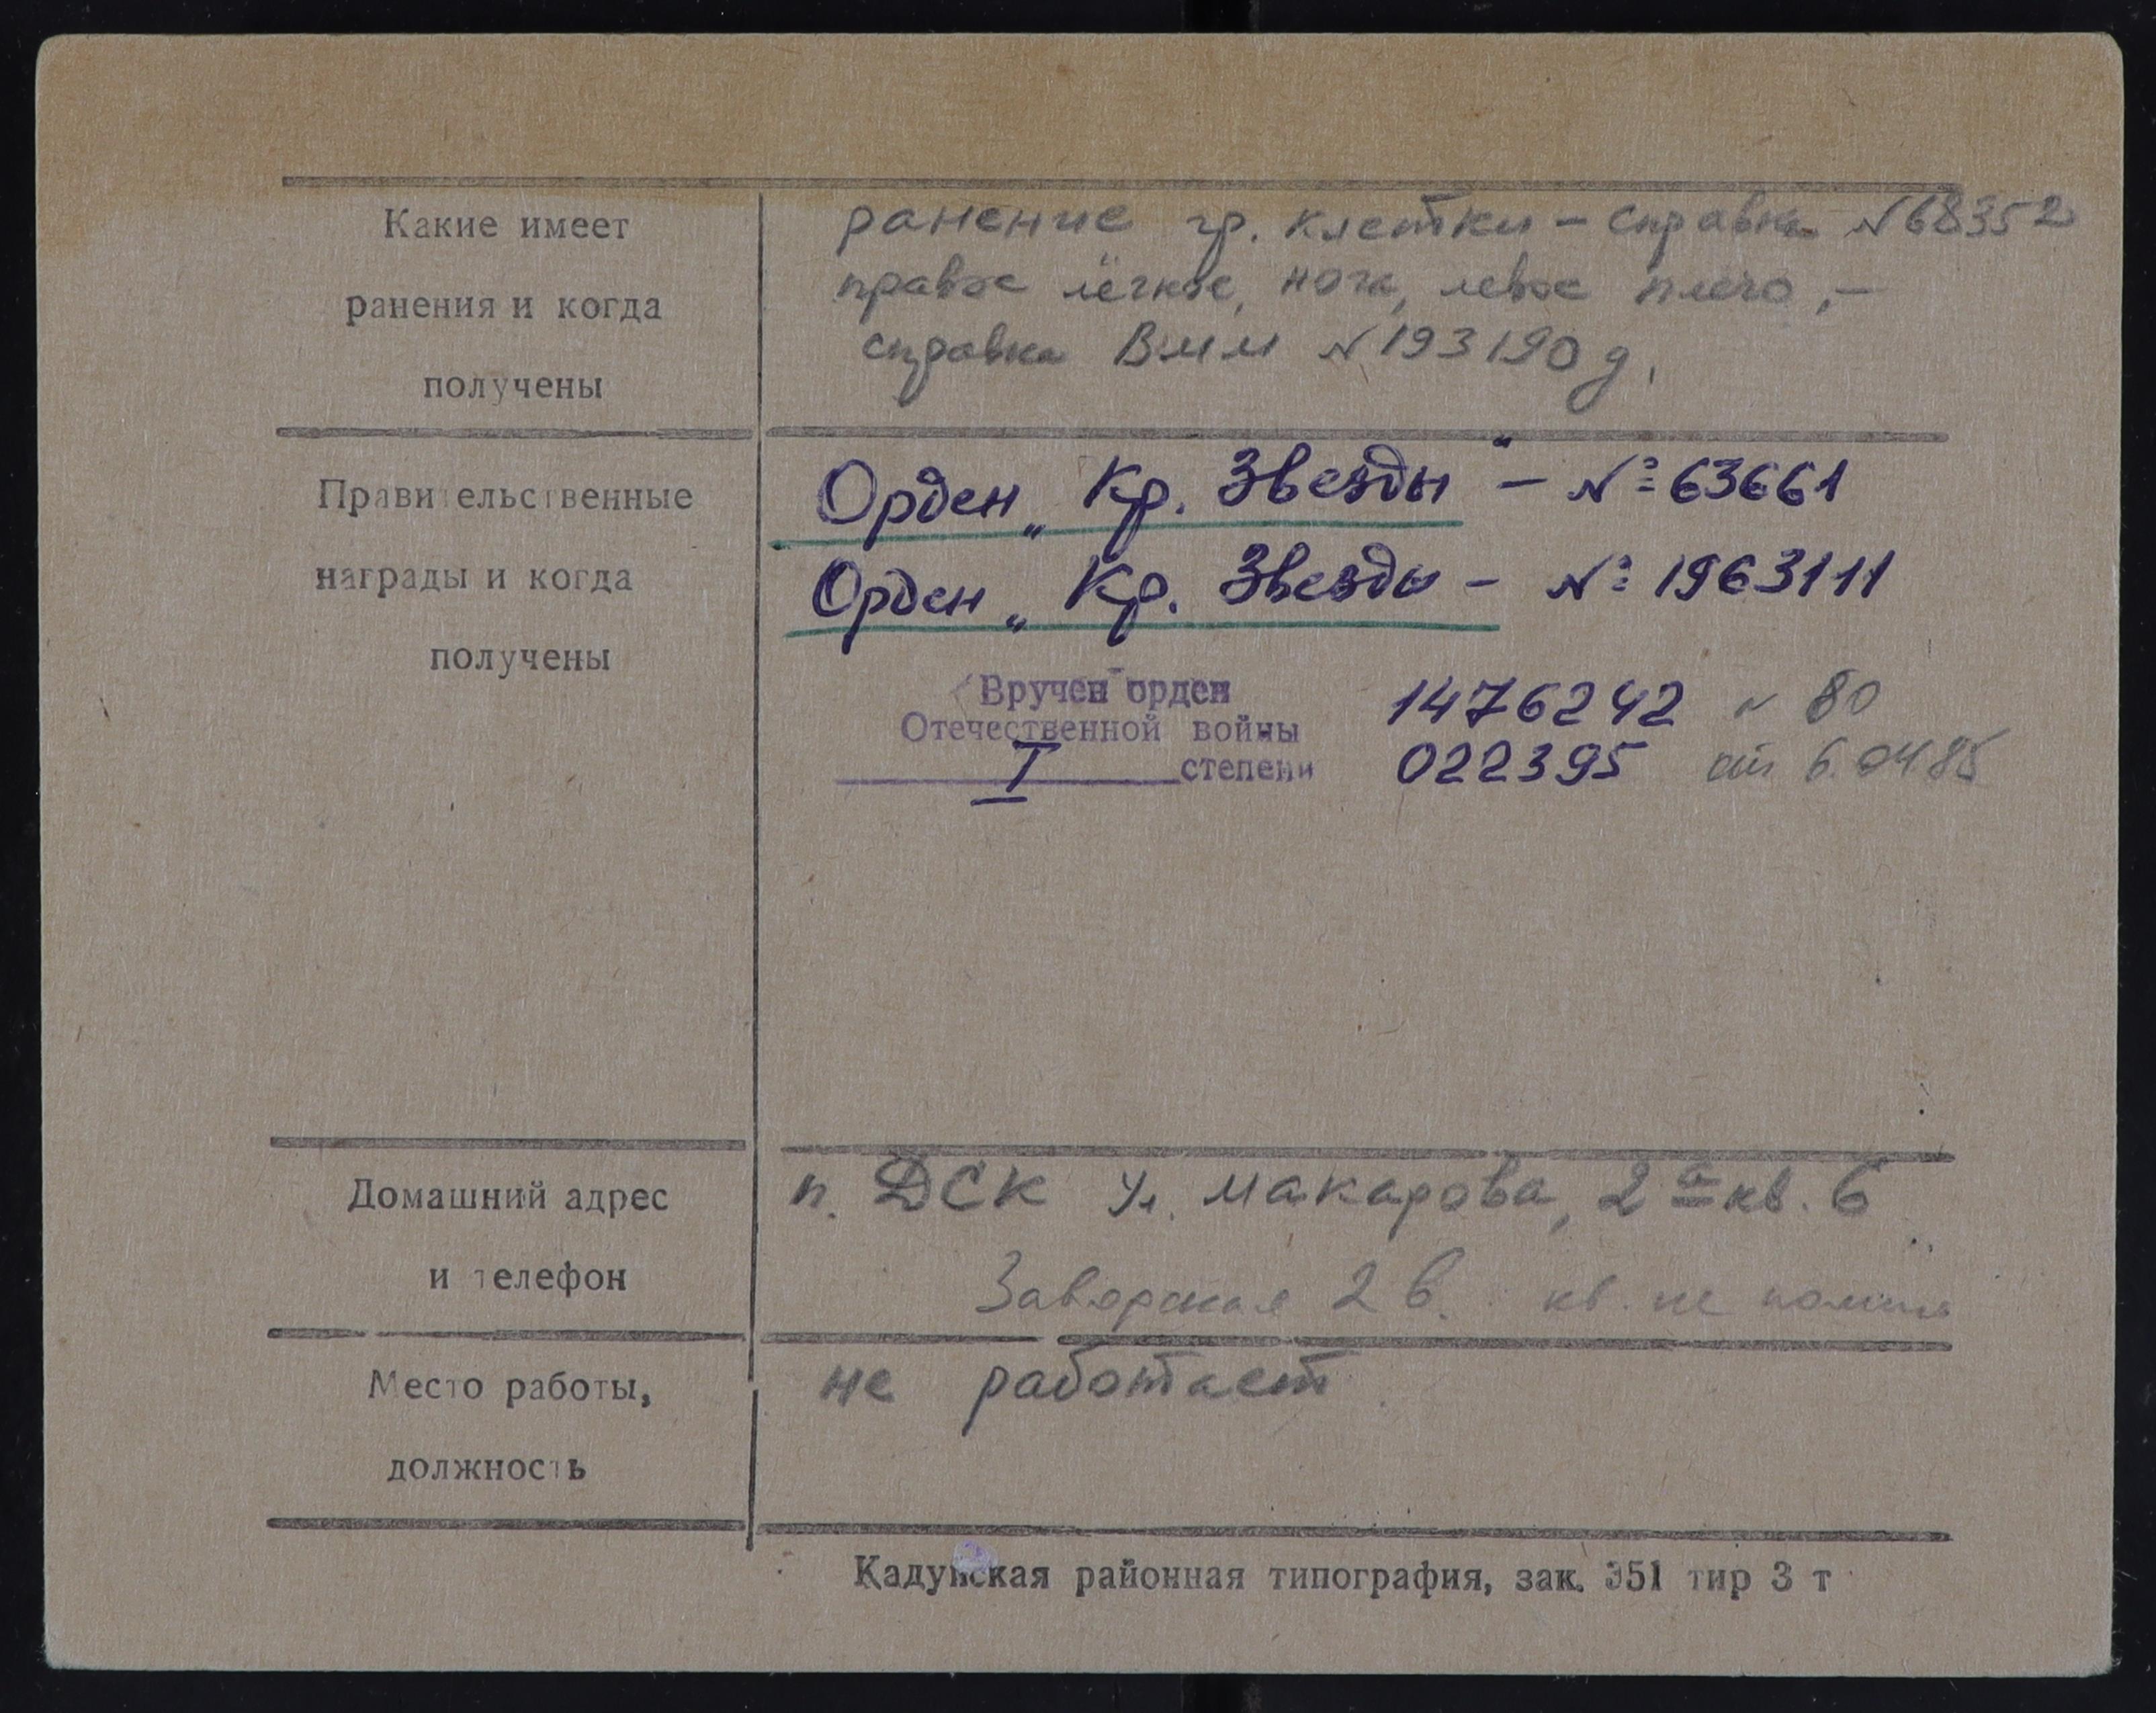 Какие имеет
ранения и когда
получены
ранение гр. клетки – справка №68352
правое лёгкое, нога, левое плечо, –
справка ВММ №193190д.
Правительственные
награды и когда
получены
Орден „Кр. Звезды" – №63661
Орден „Кр. Звезды – № 1963111
Вручен орден
Отечественной войны
I степени
1476242 N 80
022395 от 6.04.85
Домашний адрес
и телефон
п. ДСК ул. Макарова, 2а кв. 6
Заводская 2 в. кв. не
Место работы,
должность
не работает
Кадуйская районная типография, зак. 351 тир 3 т